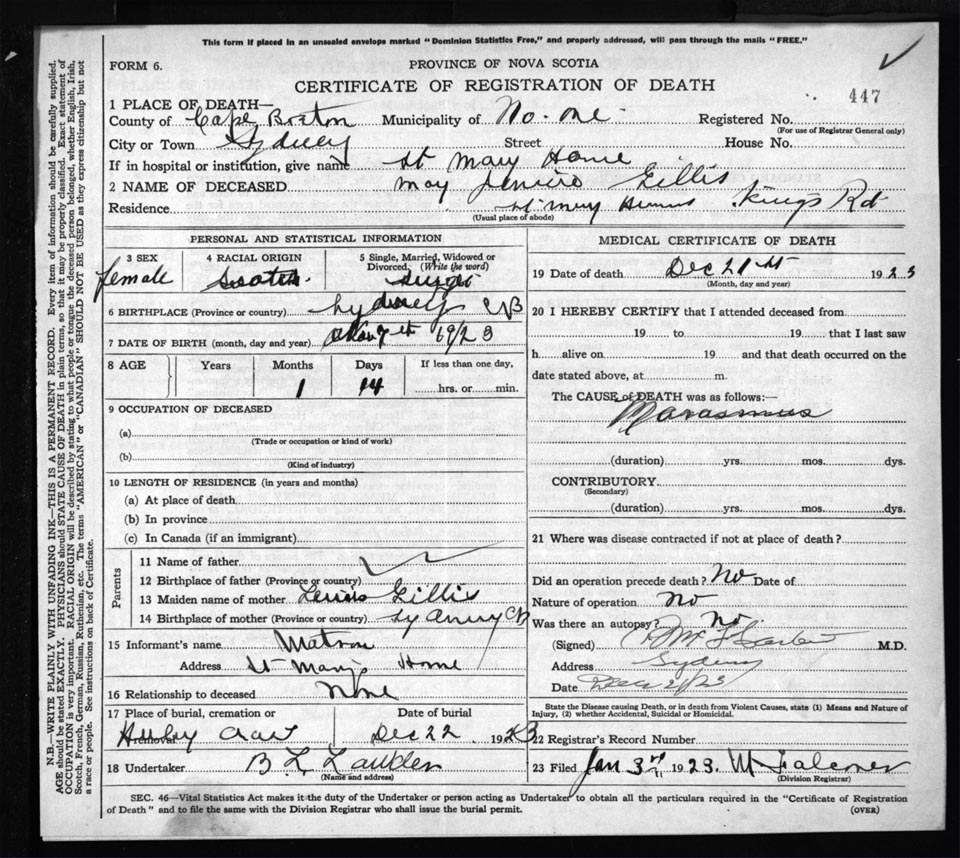 This form if placed in an unsealed envelope marked "Dominion Statistics Free," and properly addressed, will pass through the mails "FREE."
FORM 6.
PROVINCE OF NOVA SCOTIA
CERTIFICATE OF REGISTRATION OF DEATH
447
1 PLACE OF DEATH—
County of Cape Breton Municipality of No. one Registered No.
(For use of Registrar General only)
City or Town Sydney Street House No.
If in hospital or institution, give name St Mary Home
2 NAME OF DECEASED May Gillis
Residence St Mary Kings Rd
(Usual place of abode)
PERSONAL AND STATISTICAL INFORMATION
3 SEX 4 RACIAL ORIGIN 5 Single, Married, Widowed or Divorced. (Write the word)
female Scotch single
6 BIRTHPLACE (Province or country) Sydney CB
7 DATE OF BIRTH (month, day and year)
8 AGE Years Months Days If less than one day,
1 14 hrs. or min.
9 OCCUPATION OF DECEASED
(a)
(Trade or occupation or kind of work)
(b)
(Kind of industry)
10 LENGTH OF RESIDENCE (in years and months)
(a) At place of death
(b) In province
(c) In Canada (if an immigrant)
Parents
11 Name of father
12 Birthplace of father (Province or country)
13 Maiden name of mother Gillis
14 Birthplace of mother (Province or country) Sydney CB
15 Informant's name Matron
Address St Mary's Home
16 Relationship to deceased None
17 Place of burial, cremation or Removal Date of burial
Dec 22 1923
18 Undertaker B L
(Name and address)
MEDICAL CERTIFICATE OF DEATH
19 Date of death Dec 21st 1923
(Month, day and year)
20 I HEREBY CERTIFY that I attended deceased from
19 to 19 that I last saw
h alive on 19 and that death occurred on the
date stated above, at m.
The CAUSE of DEATH was as follows:—
Marasmus
(duration) yrs. mos. dys.
CONTRIBUTORY
(Secondary)
(duration) yrs. mos. dys.
21 Where was disease contracted if not at place of death?
Did an operation precede death? No Date of
Nature of operation No
Was there an autopsy? No
(Signed) M.D.
Address Sydney
Date
State the Disease causing Death, or in death from Violent Causes, state (1) Means and Nature of
Injury, (2) whether Accidental, Suicidal or Homicidal.
22 Registrar's Record Number
23 Filed Jan 3rd 1923. M Falconer
(Division Registrar)
SEC. 46—Vital Statistics Act makes it the duty of the Undertaker or person acting as Undertaker to obtain all the particulars required in the "Certificate of Registration
of Death" and to file the same with the Division Registrar who shall issue the burial permit.
(OVER)
N.B.—WRITE PLAINLY WITH UNFADING INK—THIS IS A PERMANENT RECORD. Every item of information should be carefully supplied.
AGE should be stated EXACTLY. PHYSICIANS should STATE CAUSE OF DEATH in plain terms, so that it may be properly classified. Exact statement of
OCCUPATION is very important. RACIAL ORIGIN will be described by stating to what people or tongue the deceased person belonged, whether English, Irish,
Scotch, French, German, Russian, Ruthenian, etc. The terms "AMERICAN" or "CANADIAN" SHOULD NOT BE USED as they express citizenship but not
a race or people. See instructions on back of Certificate.